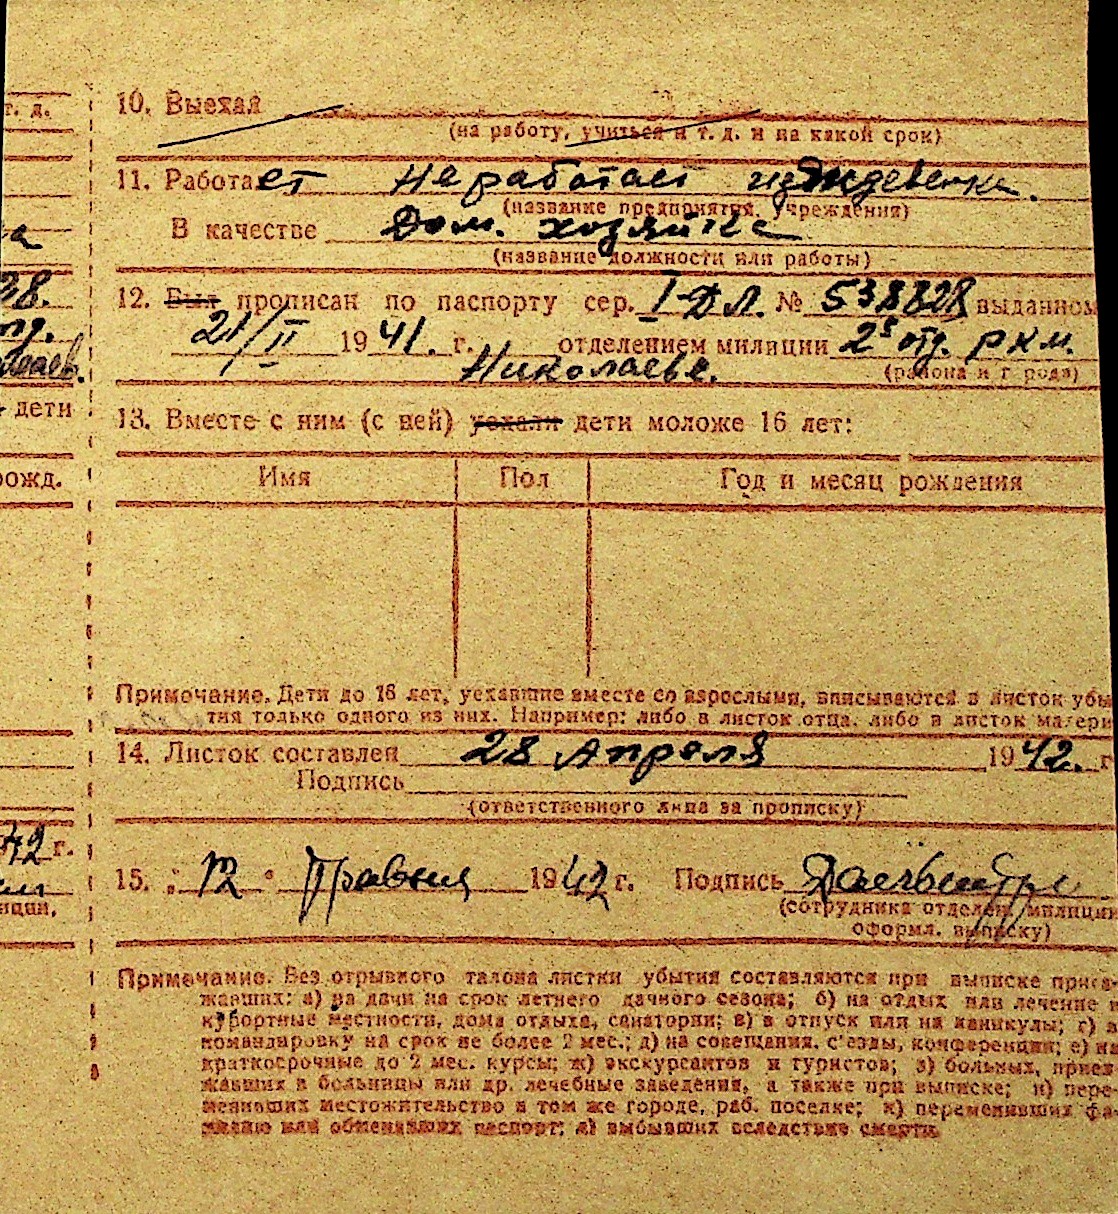 т. д.
10. Выехал
(на работу, учиться и т. д. и на какой срок)
11. Работает Не работает иждевенка.
(название предприятия, учреждения)
В качестве Дом. хозяйка
(название должности или работы)
38.
12. Был прописан по паспорту сер. I-ДЛ. № 538828 выданном
21/II 1941. г. отделением милиции 2е отд. РКМ.
Николаеве.
(района и города)
дети
13. Вместе с ним (с ней) уехали дети моложе 16 лет:
рожд.
Имя Пол Год и месяц рождения
Примечание. Дети до 16 лет, уехавшие вместе со взрослыми, вписываются в листок убы
тия только одного из них. Например: либо в листок отца, либо в листок матери
14. Листок составлен 28 Апреля 1942. г
Подпись
(ответственного лица за прописку)
42 г.
15. „12“ Травня 1942 г. Подпись
(сотрудника отделен. милиции
оформл. выписку)
Примечание. Без отрывного талона листки убытия составляются при выписке приез-
жавших: а) на дачи на срок летнего дачного сезона; б) на отдых или лечение в
курортные местности, дома отдыха, санатории; в) в отпуск или на каникулы; г) в
командировку на срок не более 2 мес.; д) на совещания, с'езды, конференции; е) на
краткосрочные до 2 мес. курсы; ж) экскурсантов и туристов; з) больных, приез-
жавших в больницы или др. лечебные заведения, а также при выписке; и) пере-
менивших местожительство в том же городе, раб. поселке; к) переменивших фа-
милию или обменявших паспорт; л) выбывших вследствие смерти.